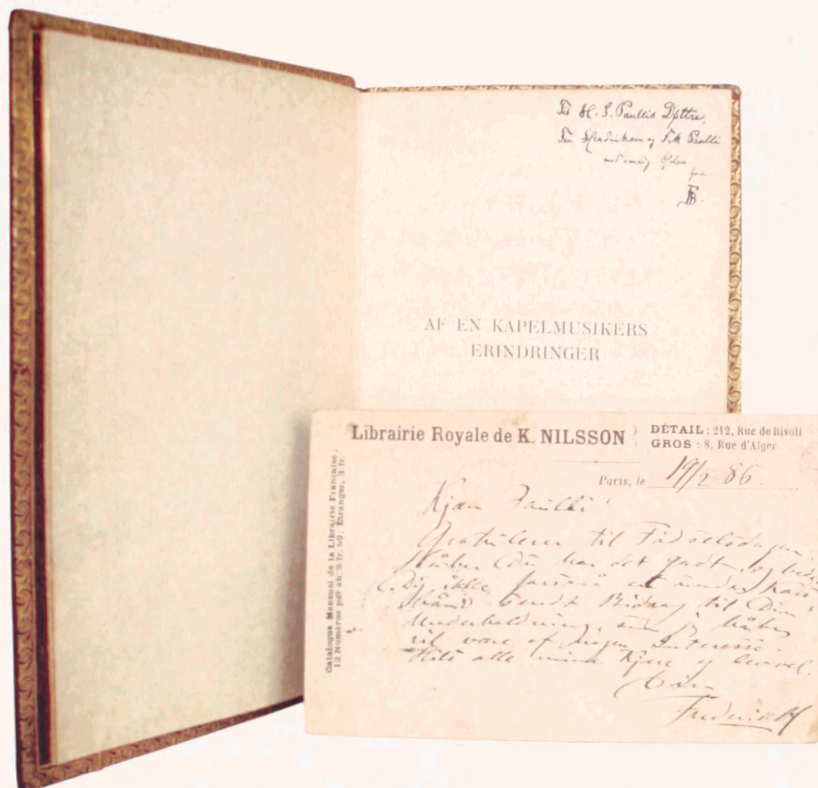 Til H. S. Paullis Døttre,
Fru Hendriksen og Frk Paulli
med venlig Hilsen
fra
FB.
AF EN KAPELMUSIKERS
ERINDRINGER
Librairie Royale de K. NILSSON
DÉTAIL : 212, Rue de Rivoli
GROS : 8, Rue d'Alger
Catalogue Mensuel de la Librairie Française :
12 Numéros par an, 2 fr. 50; Étranger, 3 fr.
Paris, le 19/2 86.
Kjære Paulli!
Gratulerer til Fødselsdagen.
Håber Du har det godt, og beder
Dig ikke
sendt Bidrag til Din
Underholdning, som jeg håber
vil være af nogen Interesse.
Hils alle mine Kjære og levvel.
Din
Frederik